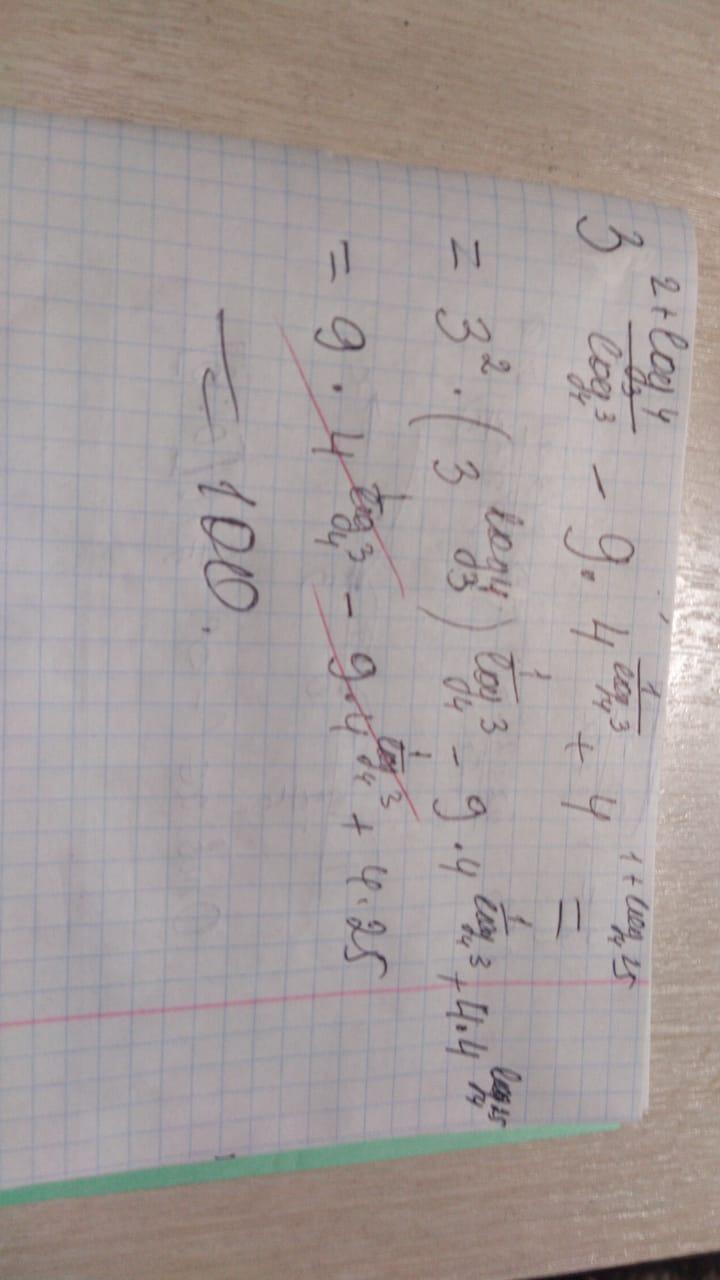 3^{2 + \frac{\log_3 4}{\log_4 3}} - 9 \cdot 4^{\frac{1}{\log_4 3}} + 4^{1 + \log_4 25} =
= 3^2 \cdot (3^{\log_3 4})^{\frac{1}{\log_4 3}} - 9 \cdot 4^{\frac{1}{\log_4 3}} + 4 \cdot 4^{\log_4 25}
= 9 \cdot 4^{\frac{1}{\log_4 3}} - 9 \cdot 4^{\frac{1}{\log_4 3}} + 4 \cdot 25
= 100.